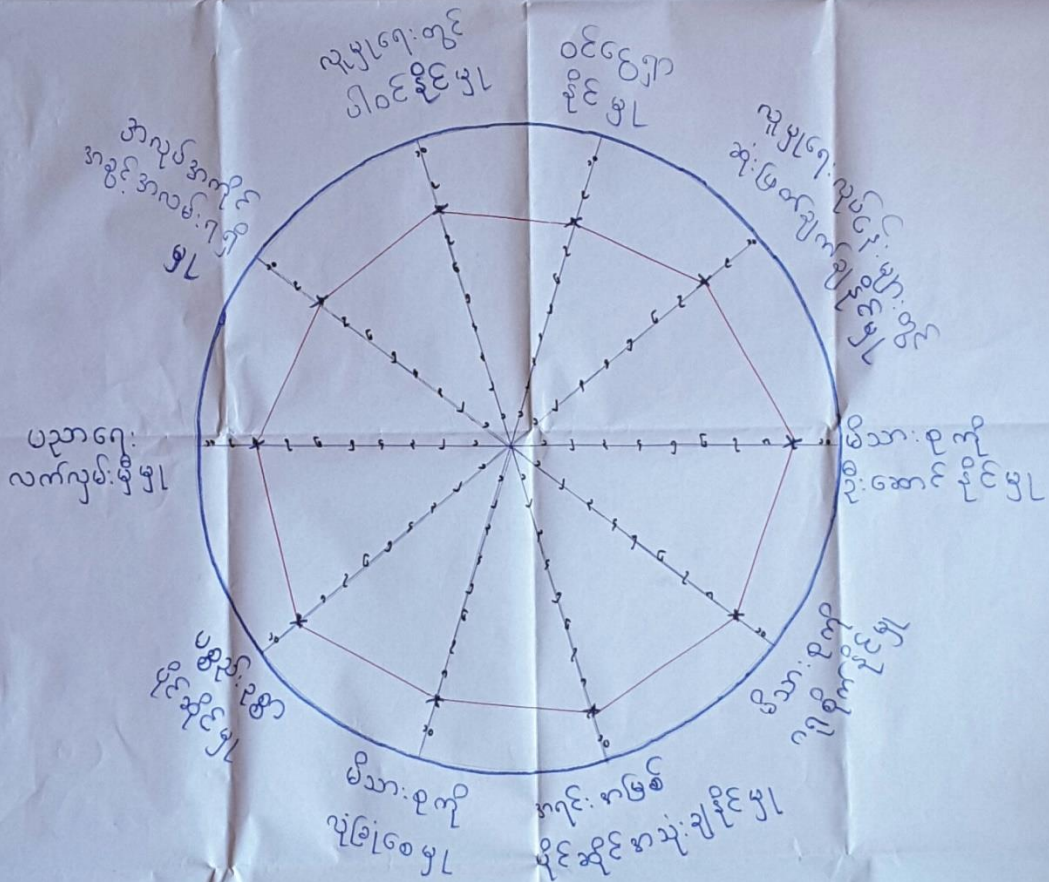 လူမှုရေးတွင်
ပါဝင်နိုင်မှု
ဝင်ငွေရှာ
နိုင်မှု
လူမှုရေးလုပ်ငန်းများတွင်
ဆုံးဖြတ်ချက်ချနိုင်မှု
မိသားစုကို
ဦးဆောင်နိုင်မှု
မိသားစုကို
မိသားစုကို
လုံခြုံစေမှု
အရင်းအမြစ်
ပိုင်ဆိုင်အသုံးချနိုင်မှု
ပစ္စည်းဥစ္စာ
ပိုင်ဆိုင်မှု
ပညာရေး
လက်လှမ်းမှီမှု
အလုပ်အကိုင်
အခွင့်အလမ်းရရှိ
မှု